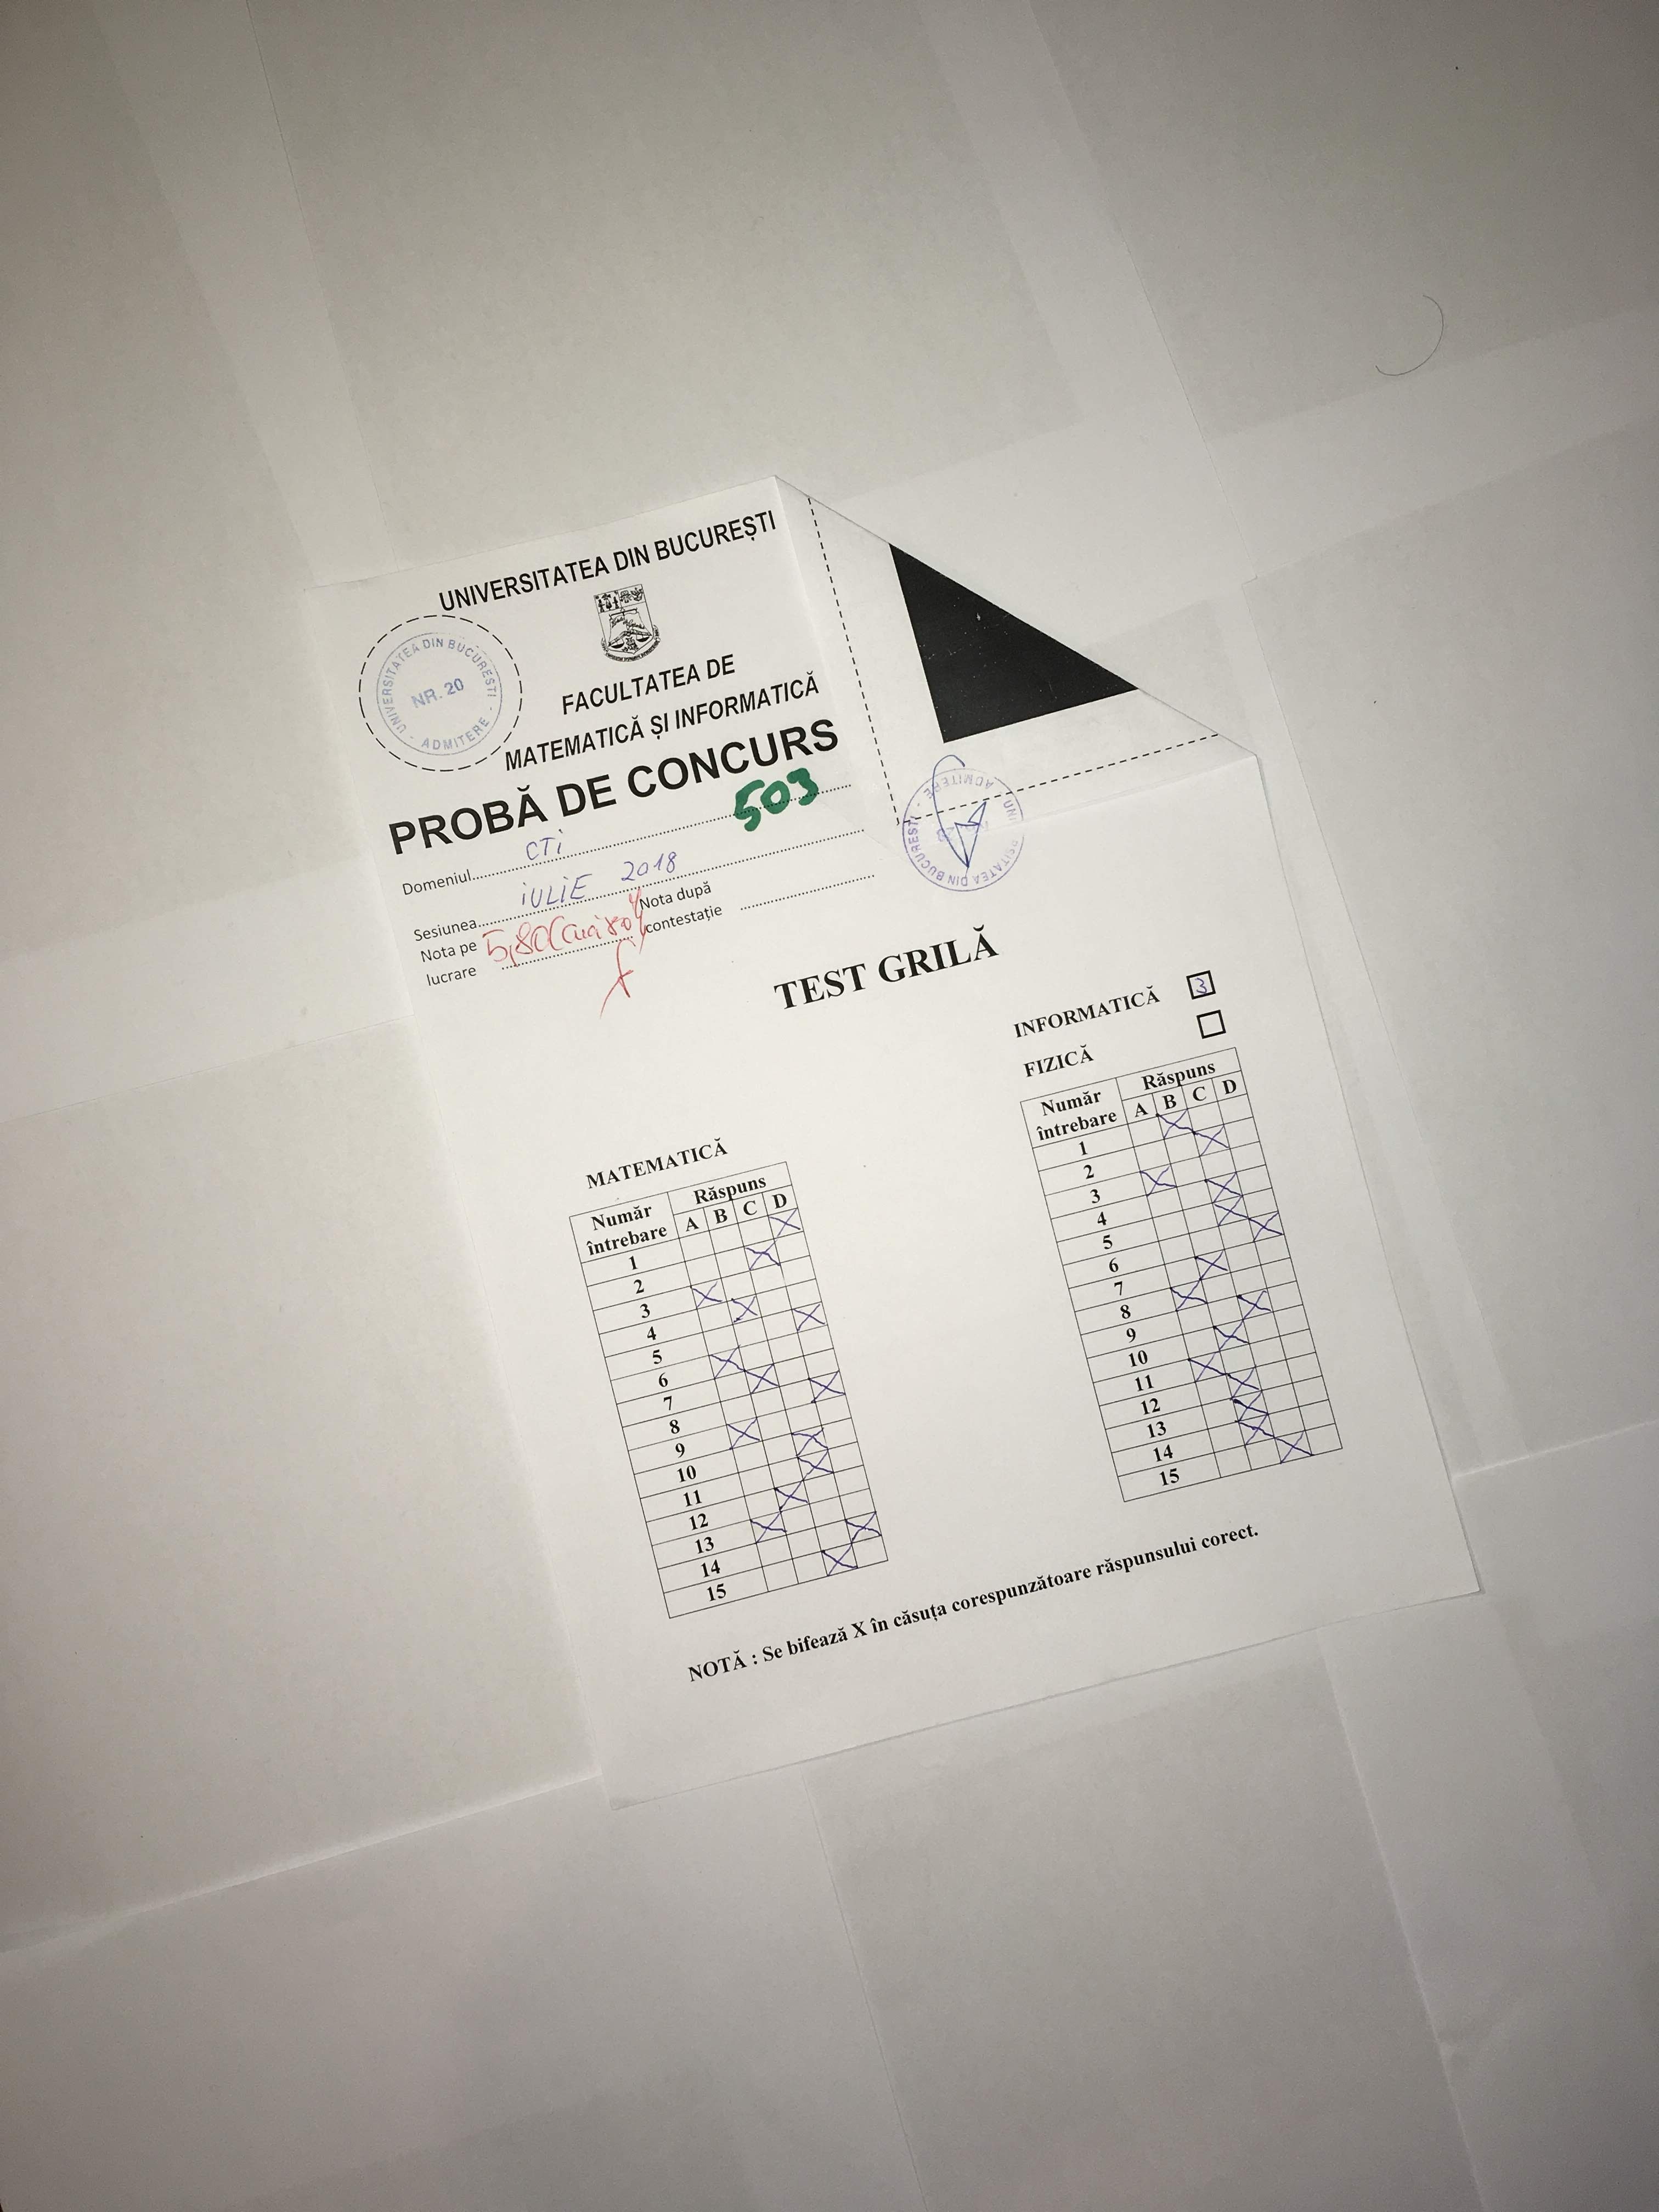 UNIVERSITATEA DIN BUCUREȘTI
UNIVERSITATEA DIN BUCURESTI
NR. 20
- ADMITERE -
FACULTATEA DE
MATEMATICĂ ȘI INFORMATICĂ
PROBĂ DE CONCURS
503
Domeniul CTi
Sesiunea iULiE 2018
Nota pe lucrare 5,80
Nota după contestație
ADMITERE
DIN BUCURESTI
TEST GRILĂ
INFORMATICĂ 3
FIZICĂ
MATEMATICĂ
Număr întrebare Răspuns
A B C D
1 X
2 X
3 X
4 X
5 X
6 X
7 X
8 X
9 X
10 X
11 X
12 X
13 X
14 X
15 X
Număr întrebare Răspuns
A B C D
1 X
2 X
3 X
4 X
5 X
6 X
7 X
8 X
9 X
10 X
11 X
12 X
13 X
14 X
15 X
NOTĂ : Se bifează X în căsuța corespunzătoare răspunsului corect.